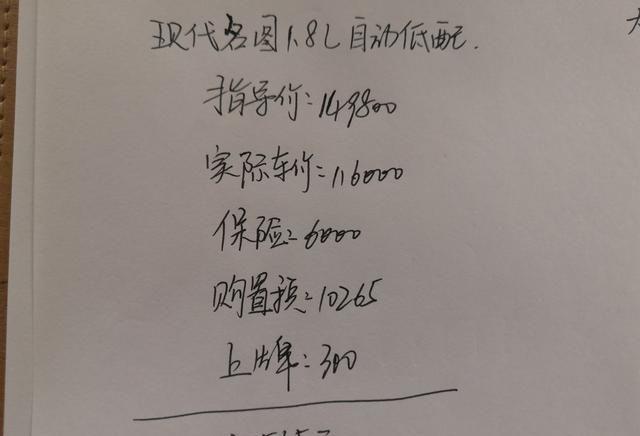 现代名图1.8L自动低配.
指导价:149800
实际车价:116000
保险:6000
购置税:10265
上牌:300